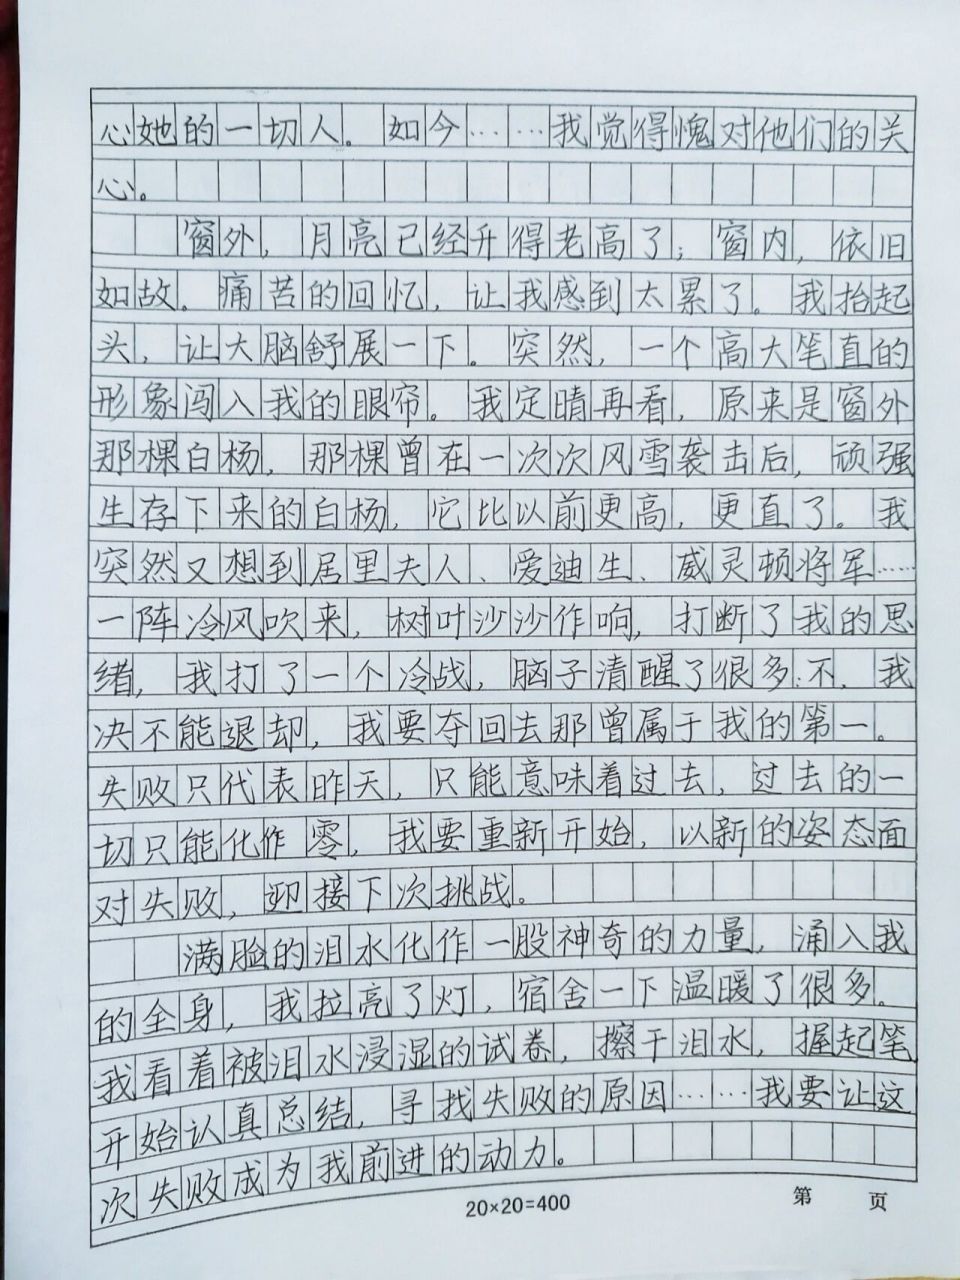 心她的一切人。如今……我觉得愧对他们的关
心。
窗外，月亮已经升得老高了；窗内，依旧
如故。痛苦的回忆，让我感到太累了。我抬起
头，让大脑舒展一下。突然，一个高大笔直的
形象闯入我的眼帘。我定睛再看，原来是窗外
那棵白杨，那棵曾在一次次风雪袭击后，顽强
生存下来的白杨，它比以前更高，更直了。我
突然又想到居里夫人、爱迪生、威灵顿将军……
一阵冷风吹来，树叶沙沙作响，打断了我的思
绪，我打了一个冷战，脑子清醒了很多：不，我
决不能退却，我要夺回去那曾属于我的第一。
失败只代表昨天，只能意味着过去，过去的一
切只能化作零，我要重新开始，以新的姿态面
对失败，迎接下次挑战。
满脸的泪水化作一股神奇的力量，涌入我
的全身，我拉亮了灯，宿舍一下温暖了很多。
我看着被泪水浸湿的试卷，擦干泪水，握起笔
开始认真总结，寻找失败的原因……我要让这
次失败成为我前进的动力。
20×20=400 第 页